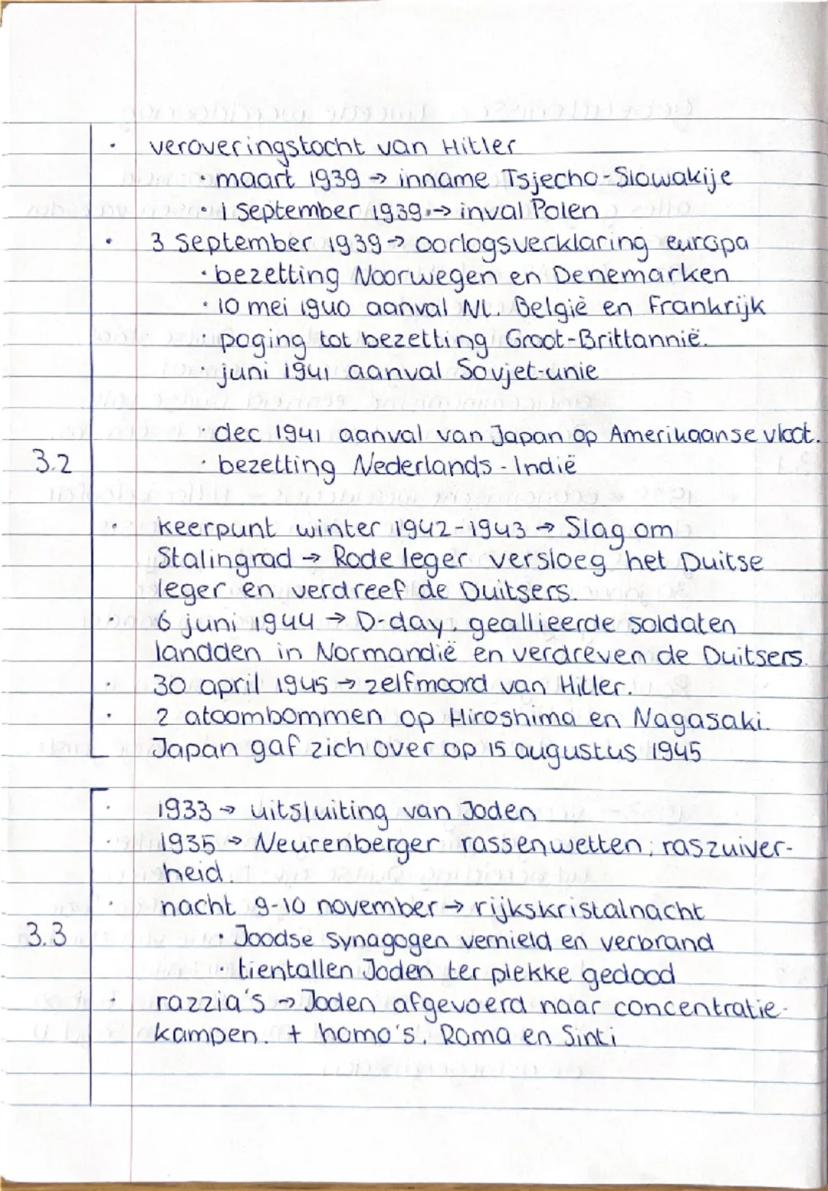 • veroveringstocht van Hitler
• maart 1939 → inname Tsjecho-Slowakije
• 1 September 1939 → inval Polen
• 3 September 1939 → oorlogsverklaring europa
• bezetting Noorwegen en Denemarken
• 10 mei 1940 aanval NL. België en Frankrijk
• poging tot bezetting Groot-Brittannië.
• juni 1941 aanval Sovjet-unie
• dec 1941 aanval van Japan op Amerikaanse vloot.
3.2 • bezetting Nederlands-Indië
• keerpunt winter 1942-1943 → Slag om
Stalingrad → Rode leger versloeg het Duitse
leger en verdreef de Duitsers.
• 6 juni 1944 → D-day, geallieerde soldaten
landden in Normandië en verdreven de Duitsers.
• 30 april 1945 → zelfmoord van Hitler.
• 2 atoombommen op Hiroshima en Nagasaki.
Japan gaf zich over op 15 augustus 1945
• 1933 → uitsluiting van Joden
• 1935 → Neurenberger rassenwetten; raszuiver-
heid.
• nacht 9-10 november → rijkskristalnacht
3.3 • Joodse synagogen vernield en verbrand
• tientallen Joden ter plekke gedood
• razzia's → Joden afgevoerd naar concentratie-
kampen. + homo's, Roma en Sinti